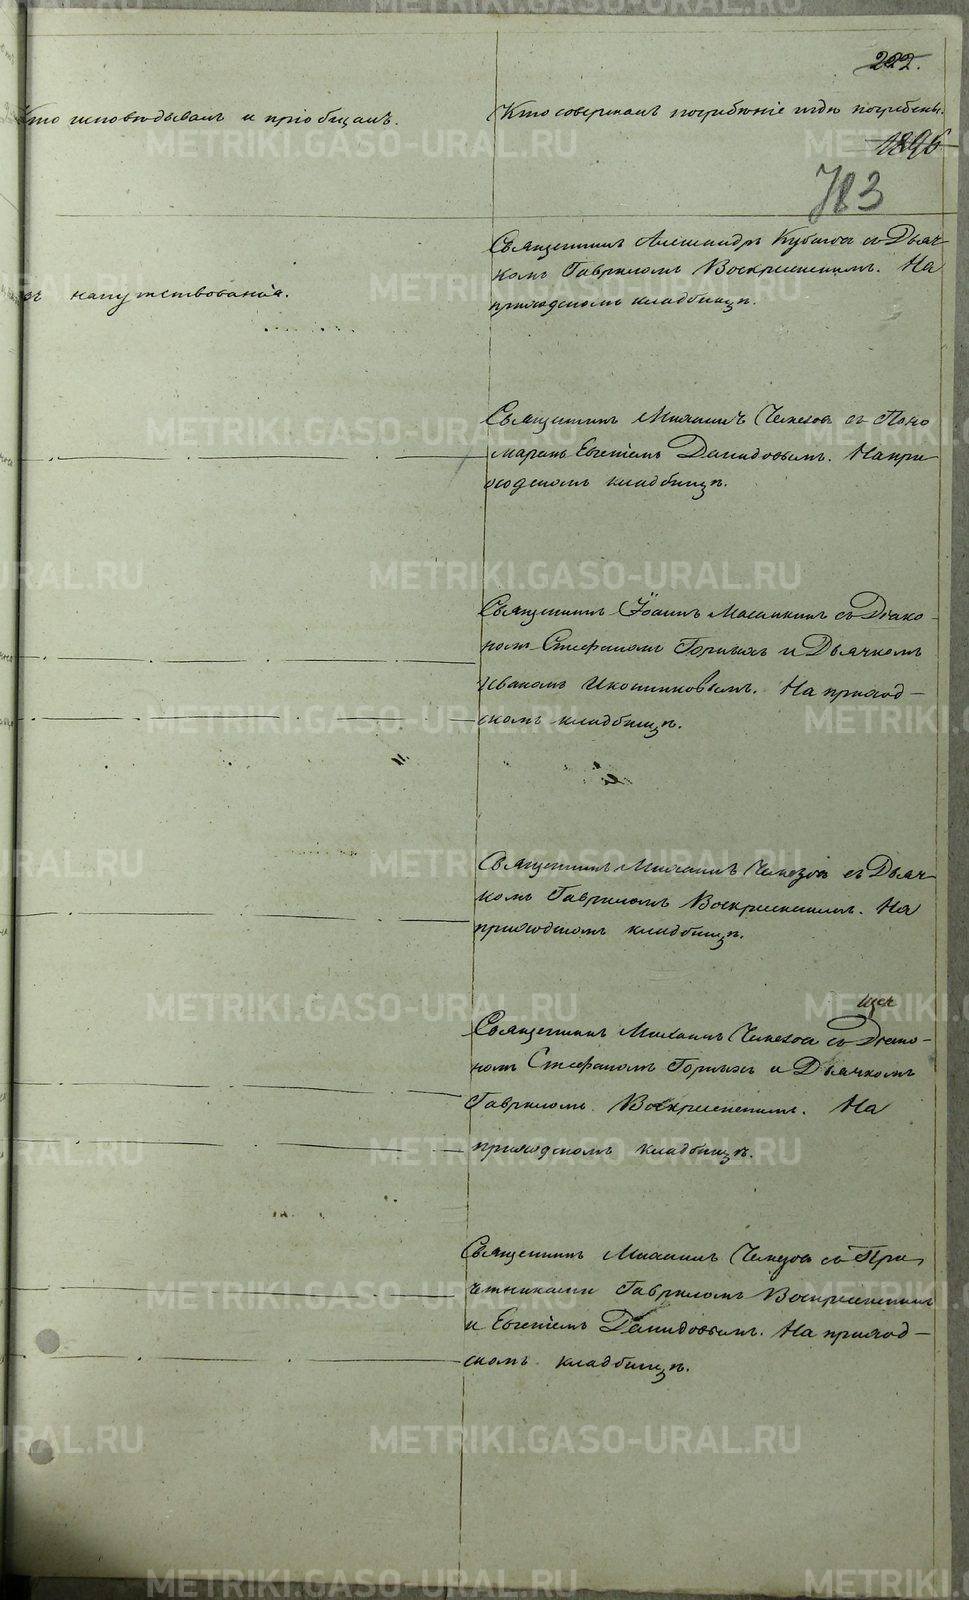 222.
Кто исповѣдывалъ и пріобщалъ.
Кто совершалъ погребеніе и гдѣ погребены.
1896
783
Священникъ Александръ Кубасовъ съ Дьяч-
комъ Гавриломъ Воскресенскимъ. На
приходскомъ кладбищѣ.
напутствованія.
Священникъ Михаилъ съ Поно
маремъ Евгеніемъ Давидовымъ. На при
ходскомъ кладбищѣ.
Священникъ Іоаннъ съ Діако-
номъ Стефаномъ Горныхъ и Дьячкомъ
Иваномъ Иконниковымъ. На приход-
скомъ кладбищѣ.
Священникъ Михаилъ съ Дьяч-
комъ Гавриломъ Воскресенскимъ. На
приходскомъ кладбищѣ.
Священникъ Михаилъ съ Діако-
номъ Стефаномъ Горныхъ и Дьячкомъ
Гавриломъ Воскресенскимъ. На
приходскомъ кладбищѣ.
Священникъ Михаилъ съ При
четниками Гавриломъ Воскресенскимъ
и Евгеніемъ Давидовымъ. На приход-
скомъ кладбищѣ.
METRIKI.GASO-URAL.RU